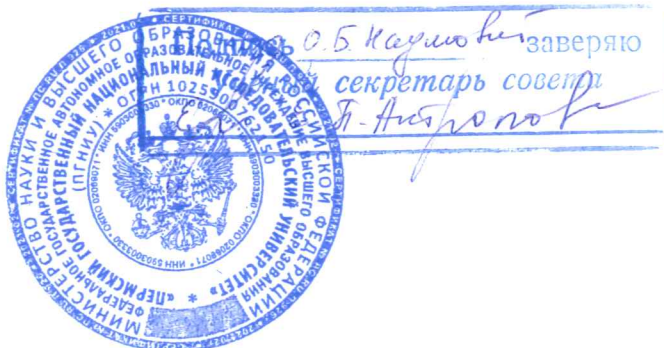 Подпись О.Б. Наумовой заверяю
секретарь совета
Е.П. Антропова
МИНИСТЕРСТВО НАУКИ И ВЫСШЕГО ОБРАЗОВАНИЯ РОССИЙСКОЙ ФЕДЕРАЦИИ
ФЕДЕРАЛЬНОЕ ГОСУДАРСТВЕННОЕ АВТОНОМНОЕ ОБРАЗОВАТЕЛЬНОЕ УЧРЕЖДЕНИЕ ВЫСШЕГО ОБРАЗОВАНИЯ
«ПЕРМСКИЙ ГОСУДАРСТВЕННЫЙ НАЦИОНАЛЬНЫЙ ИССЛЕДОВАТЕЛЬСКИЙ УНИВЕРСИТЕТ»
(ПГНИУ) * ОГРН 1025900762150
* ИНН 5903003330 * ОКПО 02069071